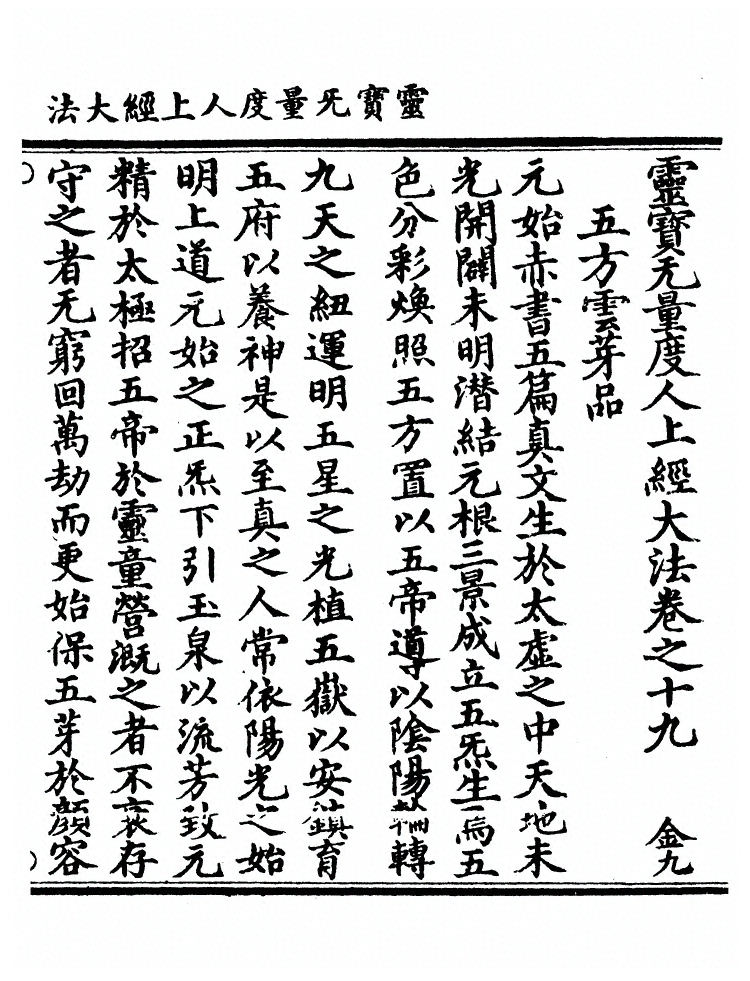 靈寶旡量度人上經大法
靈寶无量度人上經大法卷之十九 金九
五方雲芽品
元始赤書五篇真文生於太虛之中天地未
光開闢未明潜結元根三景成立五炁生焉五
色分彩煥照五方置以五帝導以陰陽輪轉
九天之紐運明五星之光植五嶽以安鎮育
五府以養神是以至真之人常依陽光之始
明上道元始之正炁下引玉泉以流芳致元
精於太極招五帝於靈童營溉之者不衰存
守之者无窮回萬劫而更始保五芽於顏容